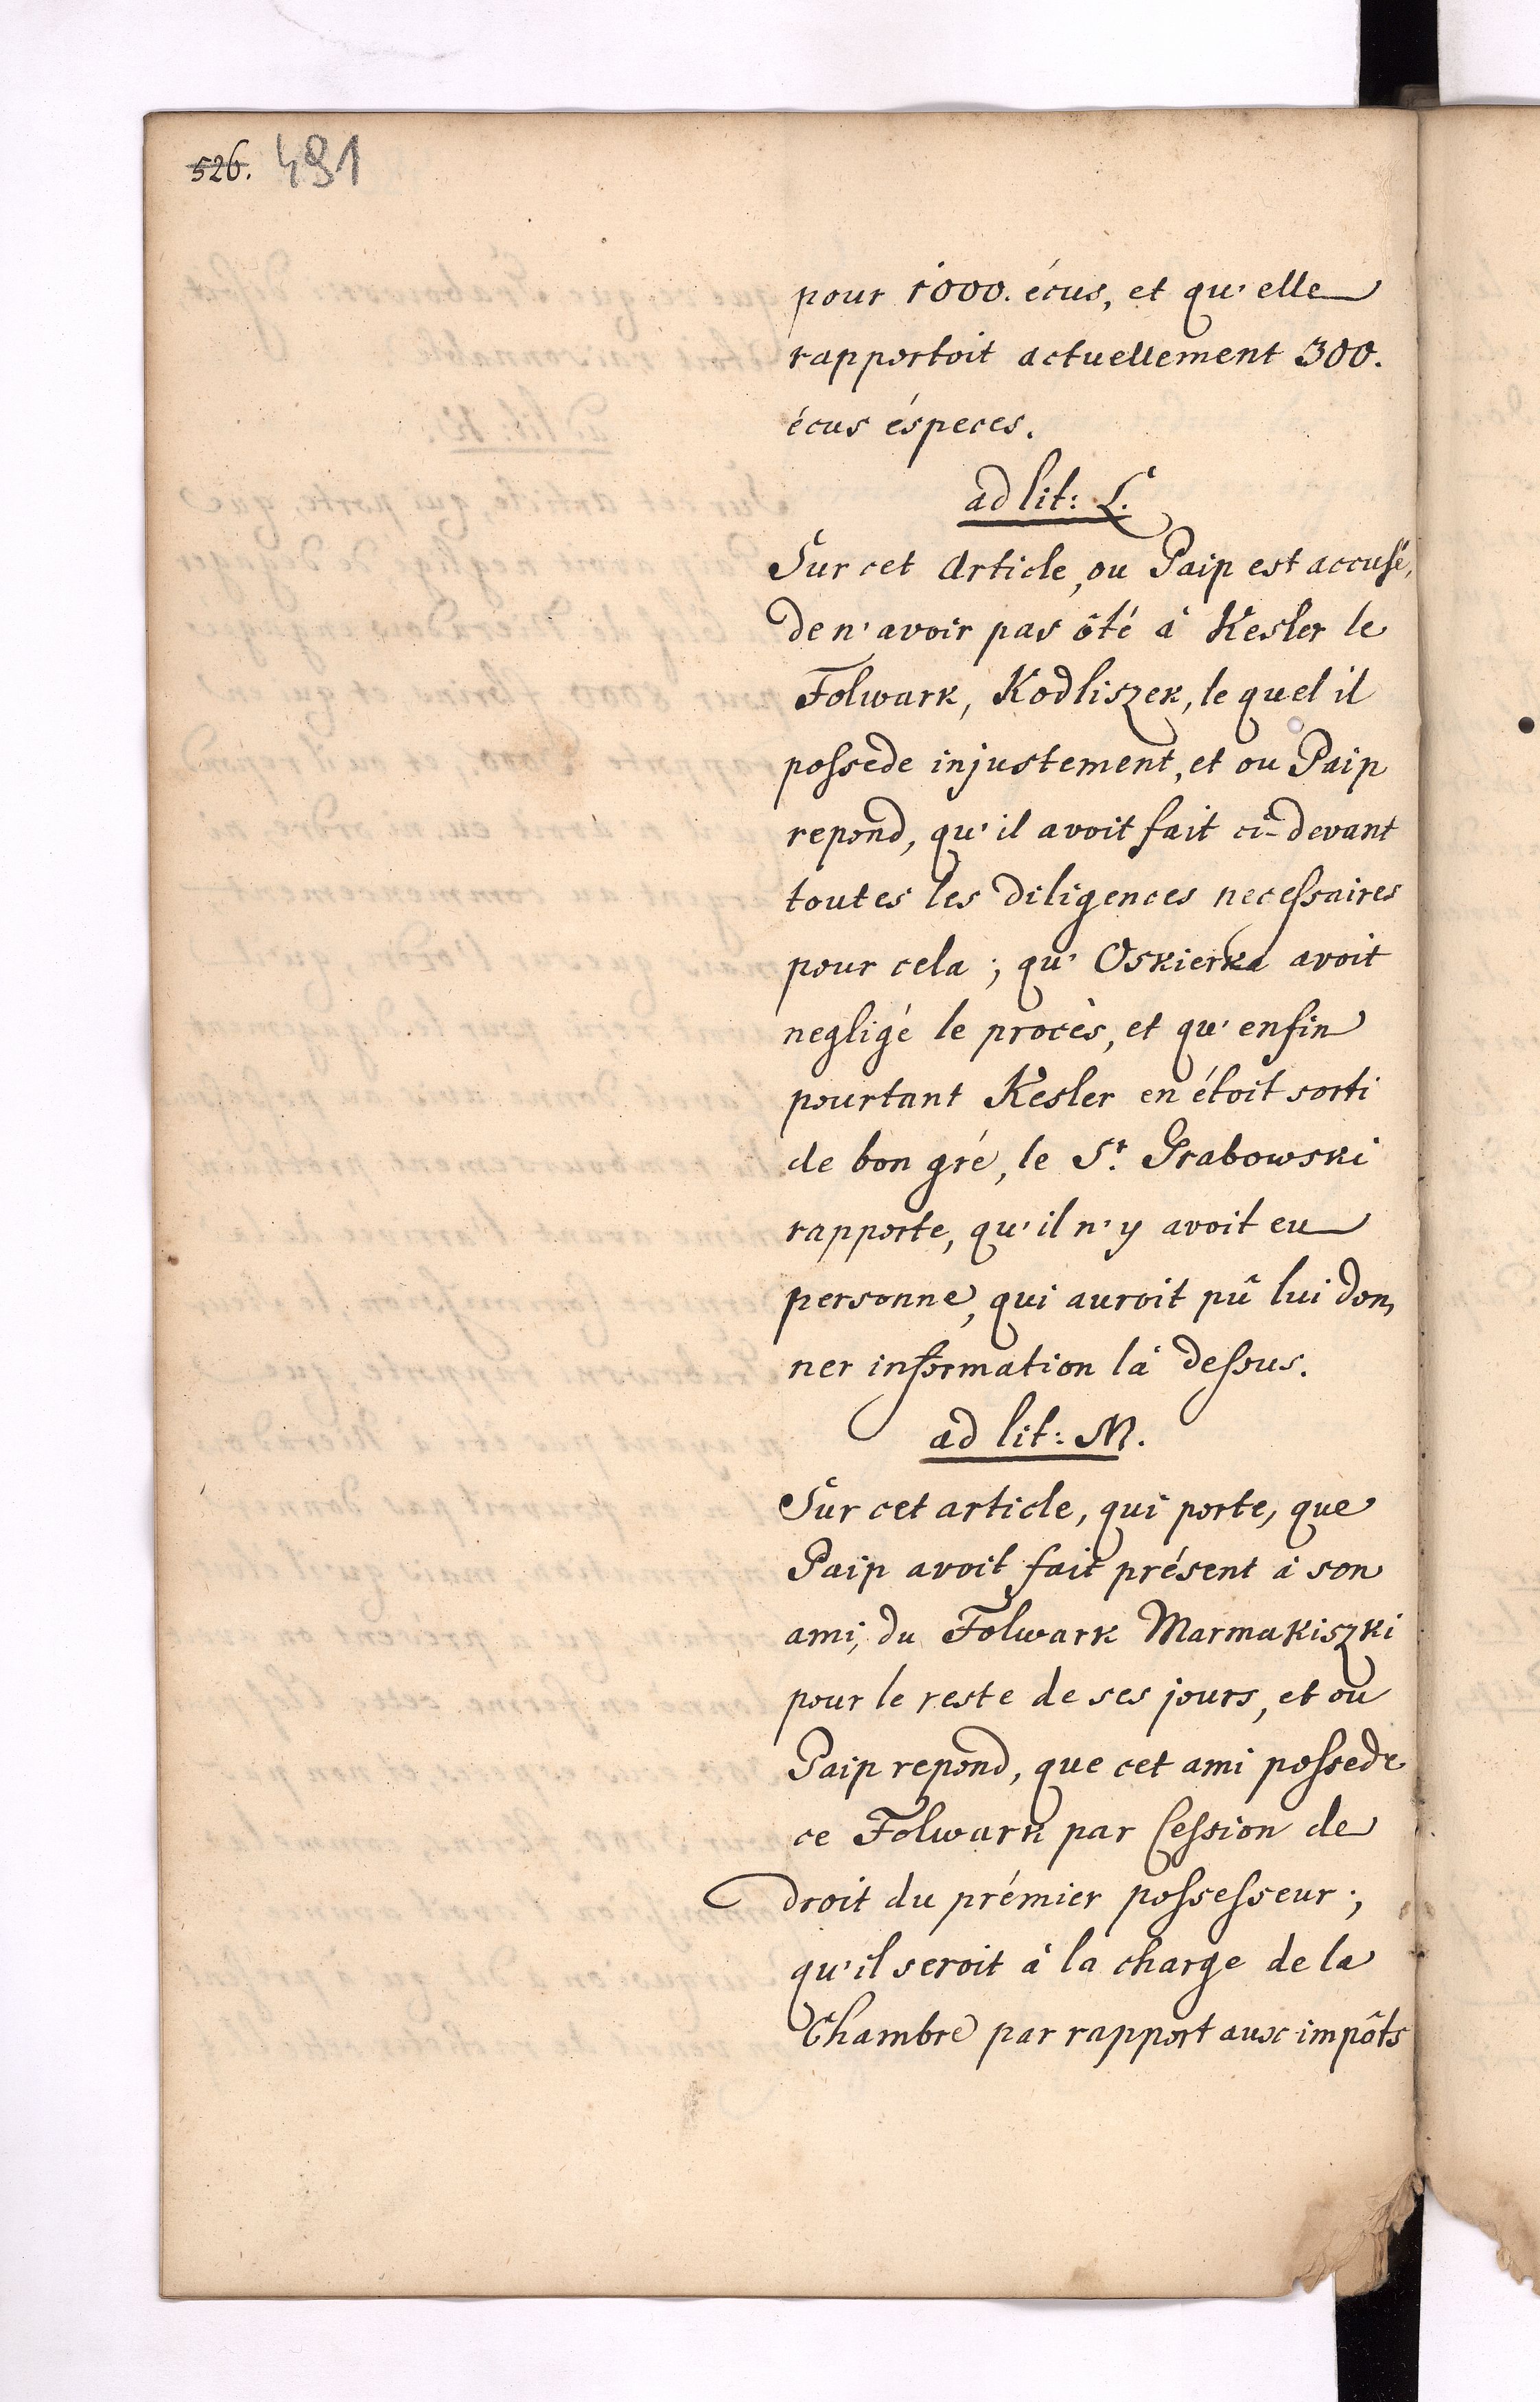 526. 491
pour 1000. écus, et qu'elle
rapportoit actuellement 300.
écus éspeces.
ad lit: L.
Sur cet Article, ou Paip est accusé,
de n'avoir pas ôté à Kesler le
Folwark, Kodliszek, le quel il
possede injustement, et ou Paip
repond, qu'il avoit fait ci-devant
toutes les diligences necessaires
pour cela; qu' Oskierka avoit
negligé le procès, et qu'enfin
pourtant Kesler en étoit sorti
de bon gré, le Sr. Grabowski
rapporte, qu'il n'y avoit eu
personne, qui auroit pû lui don,
ner information là dessus.
ad lit: M.
Sur cet article, qui porte, que
Paip avoit fait présent à son
ami, du Folwark Marmakiszki
pour le reste de ses jours, et ou
Paip repond, que cet ami possede
ce Folwark par Cession de
droit du prémier possesseur;
qu'il seroit à la charge de la
Chambre par rapport aux impôts